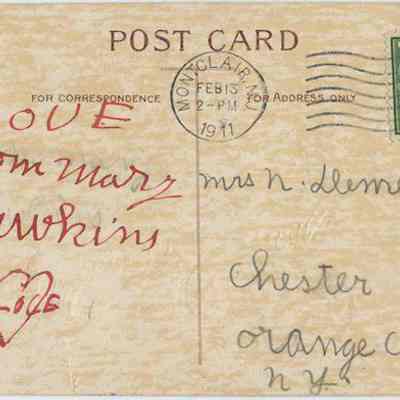 POST CARD
FOR CORRESPONDENCE
FOR ADDRESS ONLY
MONTCLAIR, N.J.
FEB 13
2-PM
1911
LOVE
from Mary
Hawkins
Love
mrs N.
Chester
orange C
N.Y.